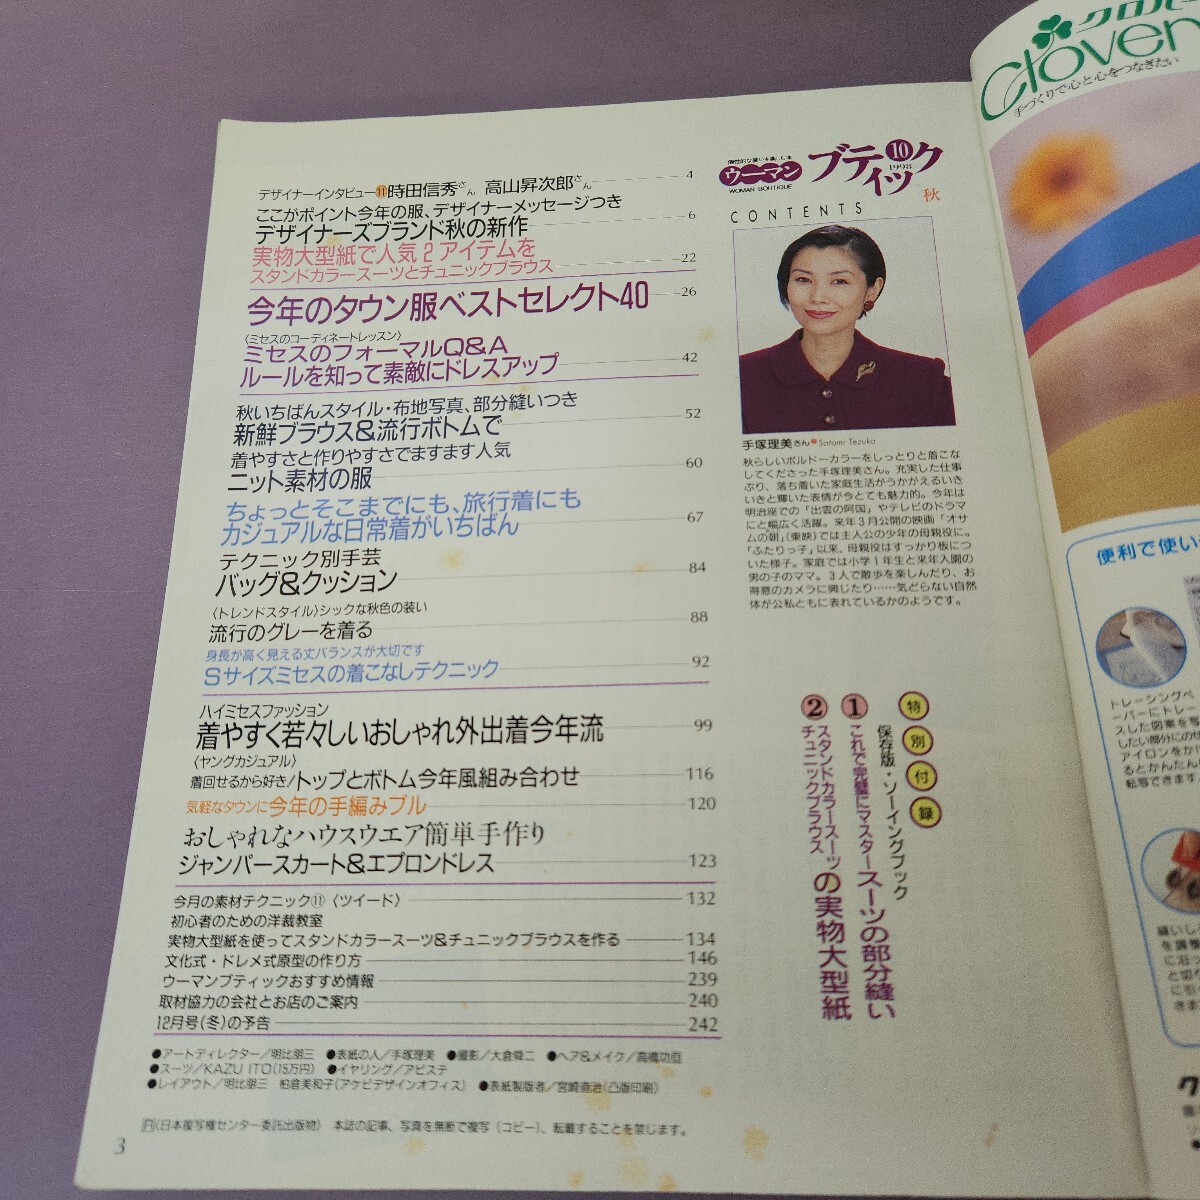 デザイナーインタビュー⑪時田信秀さん 高山昇次郎さん 4
ここがポイント今年の服、デザイナーメッセージつき
デザイナーズブランド秋の新作 6
実物大型紙で人気2アイテムを
スタンドカラースーツとチュニックブラウス 22
今年のタウン服ベストセレクト40 26
〈ミセスのコーディネートレッスン〉
ミセスのフォーマルQ&A
ルールを知って素敵にドレスアップ 42
秋いちばんスタイル・布地写真、部分縫いつき
新鮮ブラウス&流行ボトムで 52
着やすさと作りやすさでますます人気
ニット素材の服 60
ちょっとそこまでにも、旅行着にも
カジュアルな日常着がいちばん 67
テクニック別手芸
バッグ&クッション 84
〈トレンドスタイル〉シックな秋色の装い
流行のグレーを着る 88
身長が高く見える丈バランスが大切です
Sサイズミセスの着こなしテクニック 92
ハイミセスファッション
着やすく若々しいおしゃれ外出着今年流 99
〈ヤングカジュアル〉
着回せるから好き!トップとボトム今年風組み合わせ 116
気軽なタウンに今年の手編みプル 120
おしゃれなハウスウエア簡単手作り
ジャンパースカート&エプロンドレス 123
今月の素材テクニック⑪〈ツイード〉 132
初心者のための洋裁教室
実物大型紙を使ってスタンドカラースーツ&チュニックブラウスを作る 134
文化式・ドレメ式原型の作り方 146
ウーマンブティックおすすめ情報 239
取材協力の会社とお店のご案内 240
12月号(冬)の予告 242
●アートディレクター/明比朋三 ●表紙の人/手塚理美 ●撮影/大倉舜二 ●ヘア&メイク/高橋功亘
●スーツ/KAZU ITO(15万円) ●イヤリング/アビステ
●レイアウト/明比朋三 柏倉美和子(アケビデザインオフィス) ●表紙製版者/宮崎直治(凸版印刷)
R〈日本複写権センター委託出版物〉 本誌の記事、写真を無断で複写(コピー)、転載することを禁じます。
3
ウーマン
WOMAN BOUTIQUE
ブティック
10
1998
秋
CONTENTS
手塚理美さん●Satomi Tezuka
秋らしいボルドーカラーをしっとりと着こな
してくださった手塚理美さん。充実した仕事
ぶり、落ち着いた家庭生活がうかがえるいき
いきと輝いた表情が今とても魅力的。今年は
明治座での「出雲の阿国」やテレビのドラマ
にと幅広く活躍。来年3月公開の映画「オサ
ムの朝」(東映)では主人公の少年の母親役に。
「ふたりっ子」以来、母親役はすっかり板につ
いた様子。家庭では小学1年生と来年入園の
男の子のママ。3人で散歩を楽しんだり、お
得意のカメラに興じたり……気どらない自然
体が公私ともに表れているかのようです。
特別付録
保存版・ソーイングブック
①これで完璧にマスタースーツの部分縫い
②スタンドカラースーツ
チュニックブラウスの実物大型紙
クロバー
Clover
手づくりで心と心をつなぎたい
便利で使い
トレーシングペ
ーパーにトレー
スした図案を写
したい部分にのせ
アイロンをかけ
るとかんたん
転写できます。